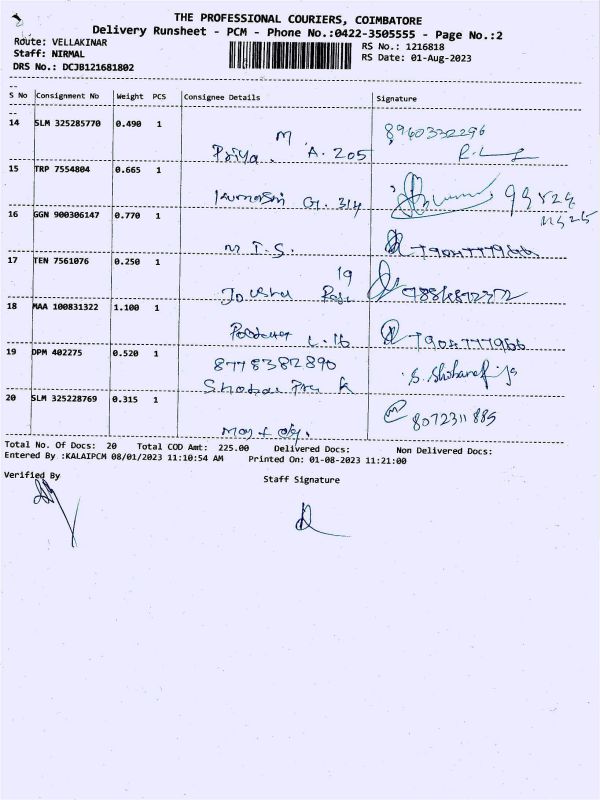 THE PROFESSIONAL COURIERS, COIMBATORE
Delivery Runsheet - PCM - Phone No.:0422-3505555 - Page No.:2
Route: VELLAKINAR
RS No.: 1216818
Staff: NIRMAL
RS Date: 01-Aug-2023
DRS No.: DCJB121681802
S No Consignment No Weight PCS Consignee Details Signature
14 SLM 325285770 0.490 1
M 8960332296
Priya. A. 205
15 TRP 7554804 0.665 1
G. 314
16 GGN 900306147 0.770 1
M T S. 7904777966
17 TEN 7561076 0.250 1
19
18 MAA 100831322 1.100 1
L. 16 7904777966
19 DPM 402275 0.520 1
8778382890
20 SLM 325228769 0.315 1
8072311885
Total No. Of Docs: 20 Total COD Amt: 225.00 Delivered Docs: Non Delivered Docs:
Entered By :KALAIPCM 08/01/2023 11:10:54 AM Printed On: 01-08-2023 11:21:00
Verified By
Staff Signature